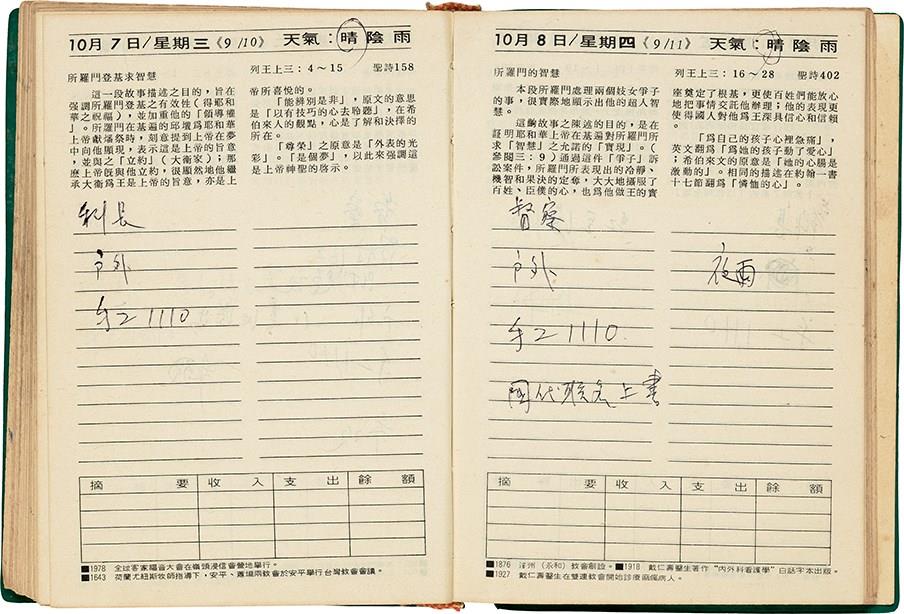 10月7日/星期三《9/10》 天氣：晴陰雨
所羅門登基求智慧
列王上三：4～15 聖詩158
這一段故事描述之目的，旨在
強調所羅門登基之有效性（得耶和
華之祝福），並加重他的「領導權
」。所羅門在基遍的邱壇爲耶和華
上帝獻燔祭時，刻意提到上帝在夢
中向他顯現，表示這是上帝的旨意
，並與之「立約」（大衛家）；那
麼上帝旣與他立約，很顯然地他繼
承大衛爲王是上帝的旨意，亦是上
帝所喜悅的。
「能辨別是非」，原文的意思
是「以有技巧的心去聆聽」，在希
伯來人的觀點，心是了解和決擇的
所在。
「尊榮」之原意是「外表的光
彩」。「是個夢」，以此來強調這
是上帝神聖的啓示。
科長
戶外
手工1110
摘要 收入 支出 餘額
■1978 全球客家福音大會在嶺頭浸信會營地舉行。
■1643 荷蘭尤紐斯牧師指導下，安平、蕭壠兩敎會於安平舉行台灣敎會會議。
10月8日/星期四《9/11》 天氣：晴陰雨
所羅門的智慧
列王上三：16～28 聖詩402
本段所羅門處理兩個妓女爭子
的事，很實際地顯示出他的超人智
慧。
這齣故事之陳述的目的，是在
証明耶和華上帝在基遍對所羅門所
求「智慧」之允諾的「實現」。（
參閱三：9）通過這件「爭子」訴
訟案件，所羅門所表現出的冷靜、
機智和果決的定奪，大大地攝服了
百姓、臣僕的心，也爲他做王的寶
座奠定了根基，更使百姓們能放心
地把事情交託他辦理；他的表現更
使得國人對他爲王深具信心和信賴
。
「爲自己的孩子心裡急痛」，
英文翻爲「爲她的孩子動了愛心」
；希伯來文的原意是「她的心腸是
激動的」。相同的描述在約翰一書
十七節翻爲「憐恤的心」。
督察
戶外
夜雨
手工1110
國代聯名上書
摘要 收入 支出 餘額
■1876 （永和）敎會創設。■1918 戴仁壽醫生著作“內外科看護學”白話字本出版。
■1927 戴仁壽醫生在雙連敎會開始診療痲瘋病人。